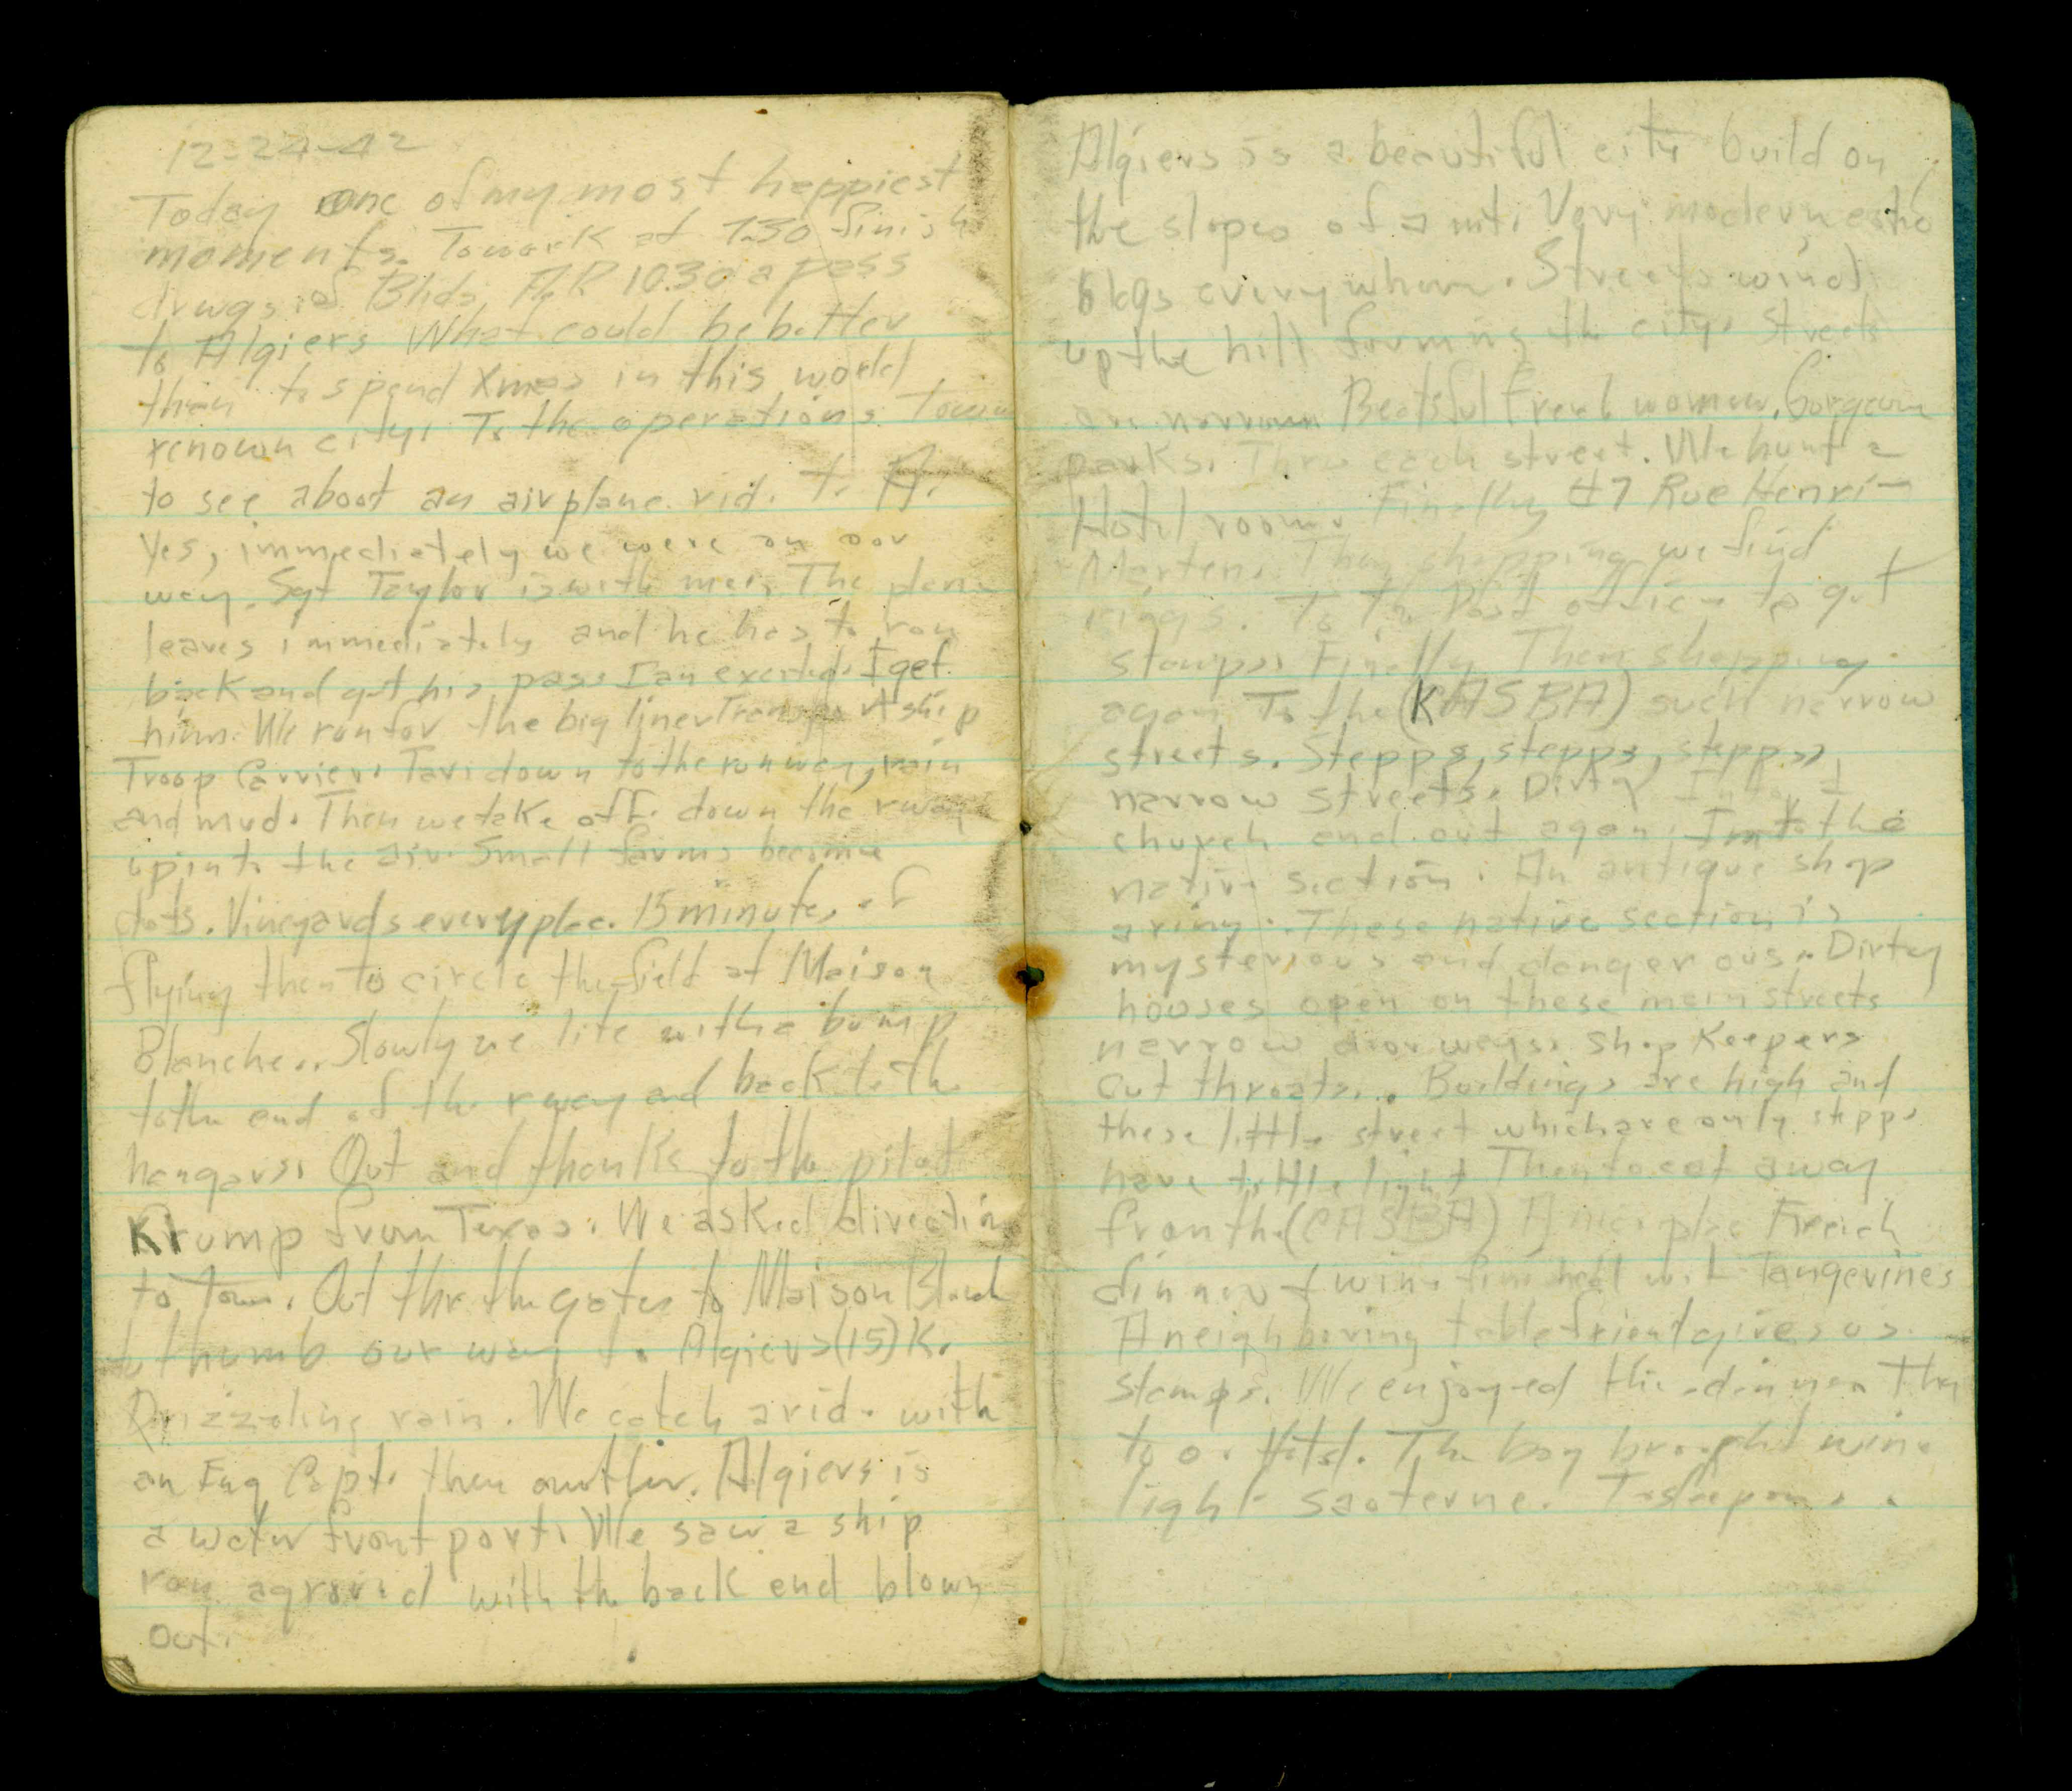 12-24-42
Today one of my most happiest
moments. To work at 7.30 finish
drwgs of Blds, A.P. 10.30 a pass
to Algiers What could be better
than to spend Xmas in this world
renown city. To the operations Tower
to see about an airplane rid. to A.
Yes, immediately we were on our
way. Sgt Taylor is with me. The plane
leaves immediately and he has to run
back and get his pass I an excited. I get
him. We ran for the big liner Transport ship
Troop Carrier. Taxi down to the runway, rain
and mud. Then we take off. down the rway
up into the air. Small farms become
dots. Vineyards every place. 15 minutes of
flying then to circle the field at Maison
Blanche.. Slowly we lite with a bump
to the end of the rway and back to the
hangars. Out and thanks to the pilot
Krump from Texas. We asked direction
to Town. Out thr the gates to Maison Blanch
to thumb our way to Algiers (15) K.
Drizzeling rain. We catch a ride with
an Eng Capt. then another. Algiers is
a water front port. We saw a ship
ran aground with the back end blown
out.
Algiers is a beautiful city build on
the slopes of a mt. Very modern,
bldgs everywhere. Streets wind
up the hill forming the city. Streets
are narrow Beatiful French women, Gorgeous
parks. Thru each street. We hunt a
Hotel room. Finally #7 Rue Henri-
Marten. Then shopping we find
rings. To the Post office to get
stamps. Finally Then shopping
agan To the (KASBA) such narrow
streets. Stepps, stepps, stepps,
narrow streets. Dirty Into a
church and out agan. Into the
native section. An antique shop
a ring. These native section is
mysterious and dangerous. Dirty
houses open on these main streets
narrow doorways. Shop Keepers
Cut throats... Buildings are high and
these little street which are only stepps
have little light Then to eat away
from the (CASBA) A nice place French
dinner & wine finished wit Tangerines
A neighboring table friend gives us
stamps. We enjoyed this dinner Then
to our Hotel. The boy brought wine
light saoterne. To sleep